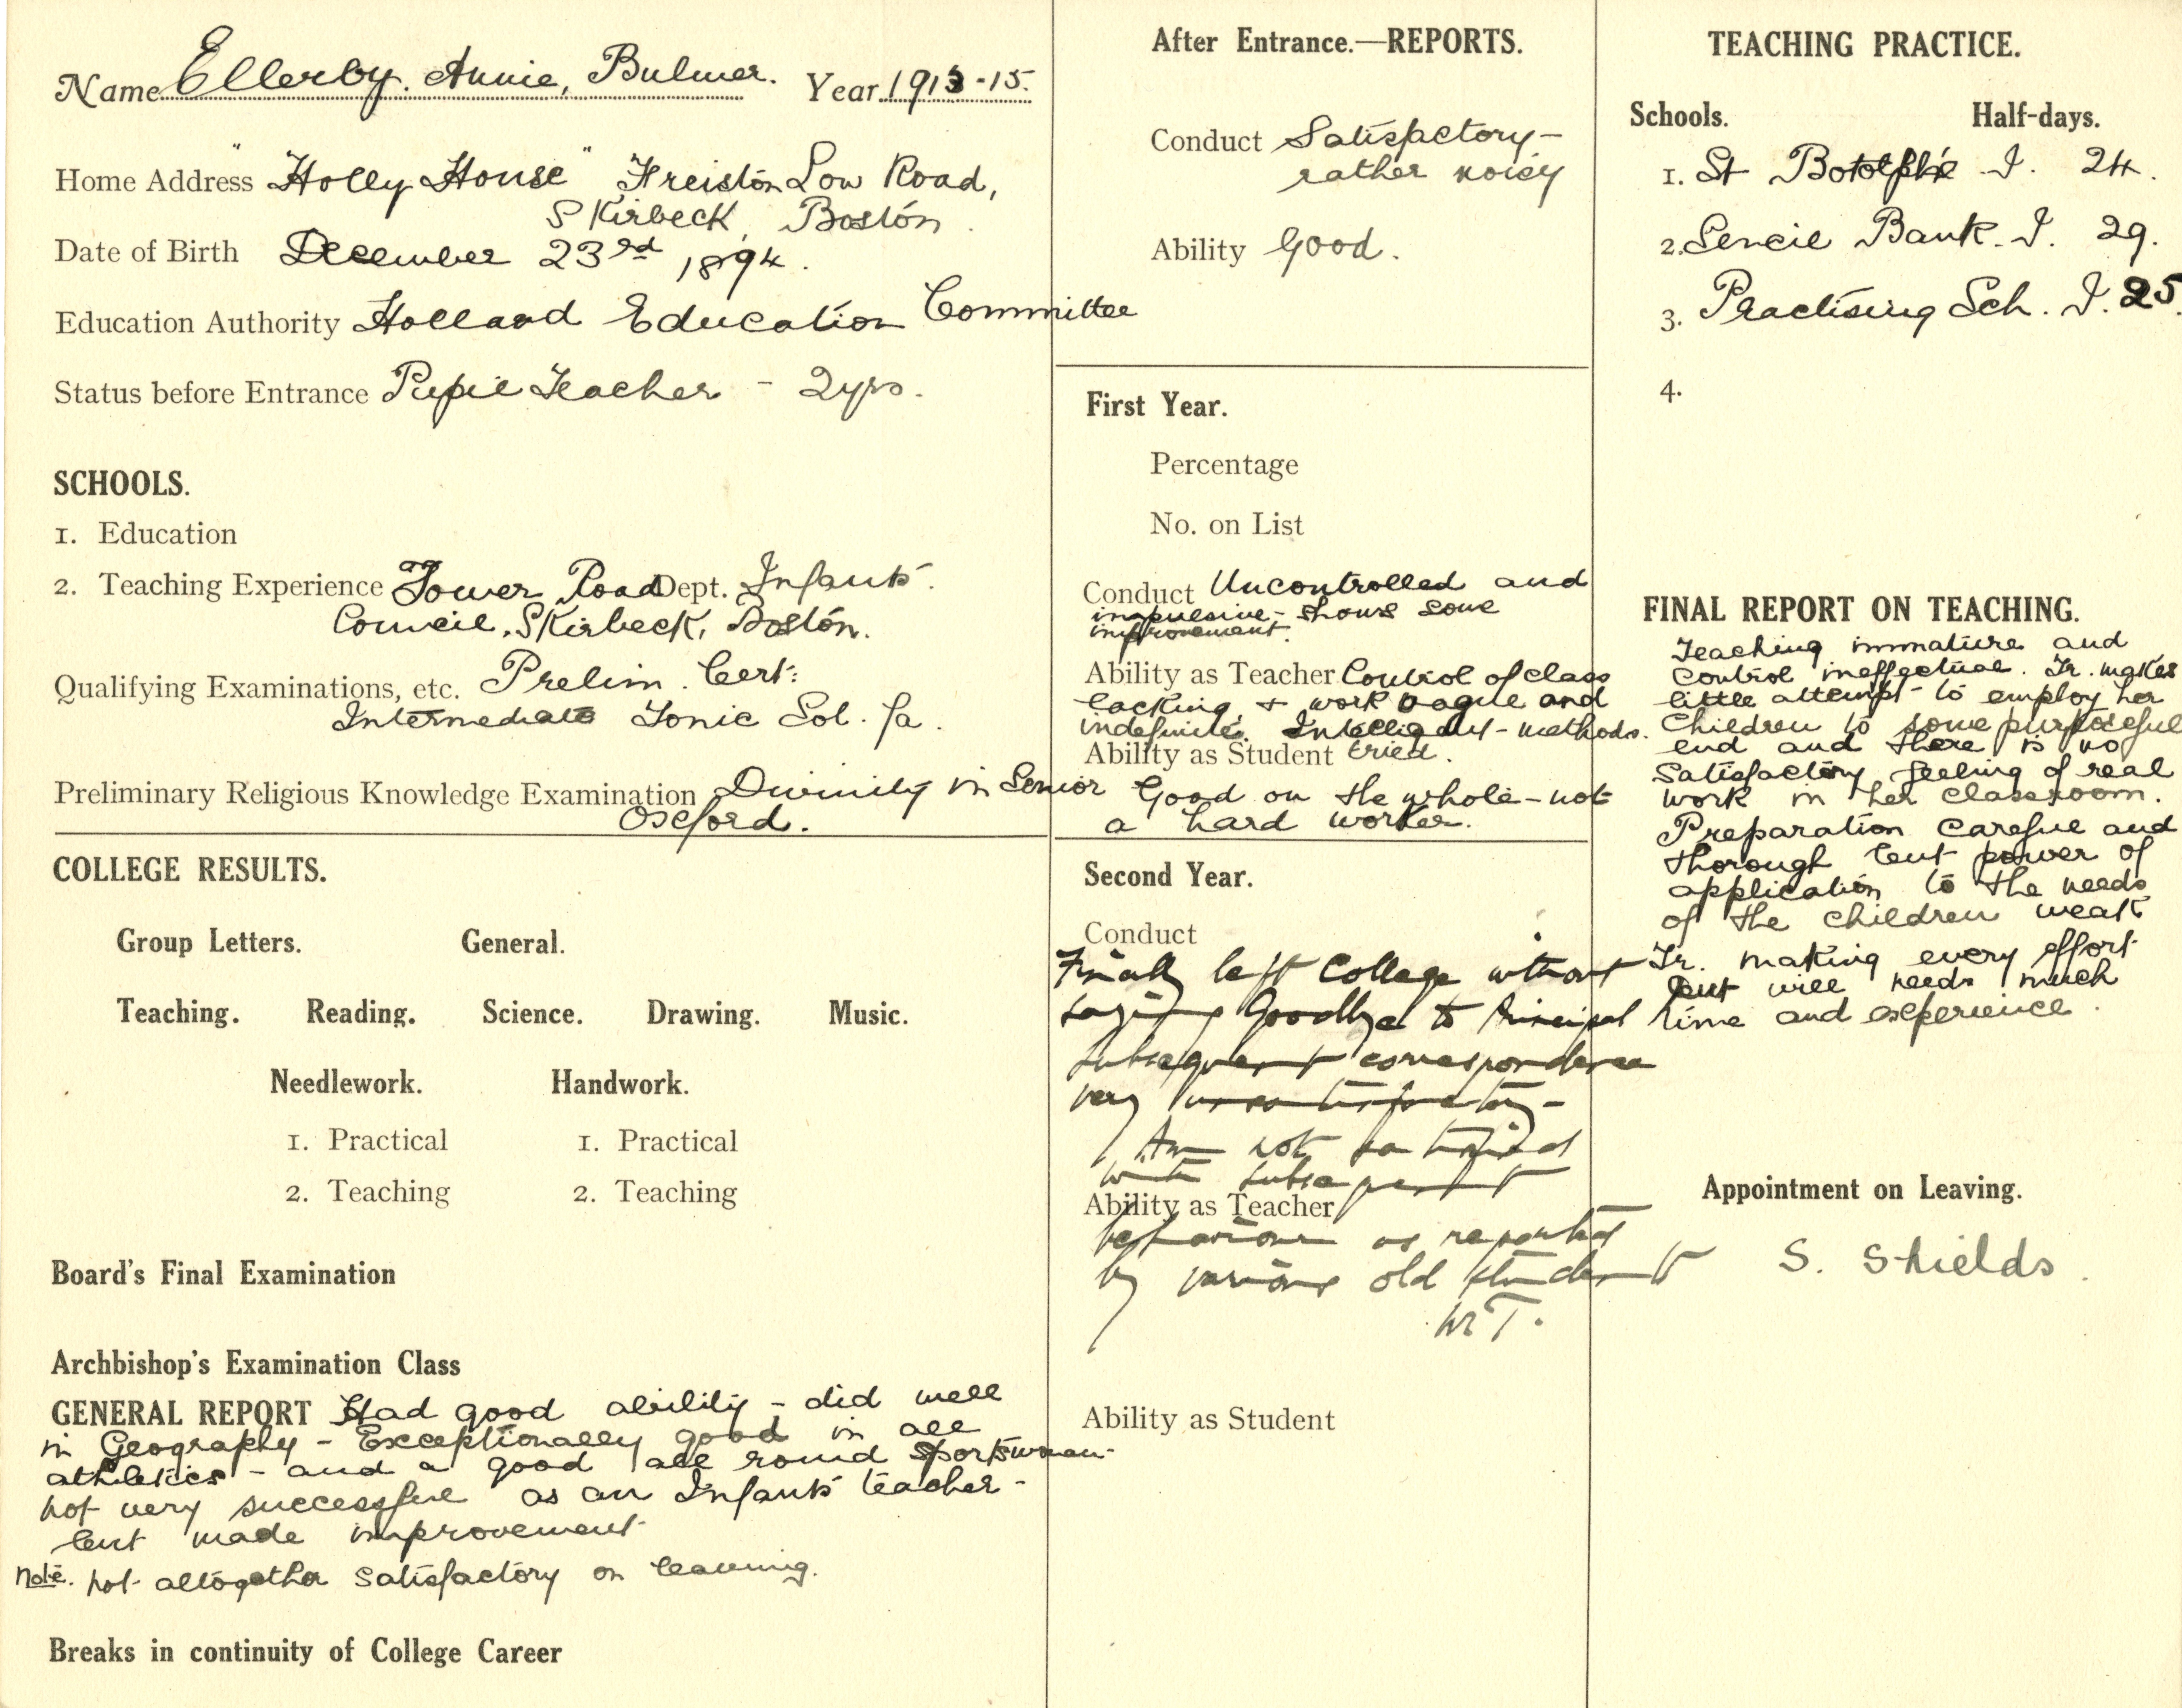 Name Ellerby. Annie, Bulmer. Year 1913-15.
Home Address "Holly House" Freiston Low Road,
Skirbeck, Boston.
Date of Birth December 23rd 1894.
Education Authority Holland Education Committee
Status before Entrance Pupil Teacher - 2yrs.
SCHOOLS.
1. Education
2. Teaching Experience Tower Road Dept. Infants'.
Council, Skirbeck, Boston.
Qualifying Examinations, etc. Prelim. Cert:
Intermediate Tonic Sol. fa.
Preliminary Religious Knowledge Examination Divinity in Senior
Oxford.
COLLEGE RESULTS.
Group Letters. General.
Teaching. Reading. Science. Drawing. Music.
Needlework. Handwork.
1. Practical 1. Practical
2. Teaching 2. Teaching
Board's Final Examination
Archbishop's Examination Class
GENERAL REPORT Had good ability - did well
in Geography - Exceptionally good in all
athletics - and a good all round sportswoman -
not very successful as an Infants' teacher -
but made improvement
Note. not altogether satisfactory on leaving.
Breaks in continuity of College Career
After Entrance.—REPORTS.
Conduct Satisfactory -
rather noisy
Ability Good.
First Year.
Percentage
No. on List
Conduct Uncontrolled and
impulsive - shows some
improvement.
Ability as Teacher Control of class
lacking & work vague and
indefinite. Intelligent - methods.
Ability as Student tried.
Good on the whole - not
a hard worker.
Second Year.
Conduct
Finally left College without
saying Goodbye to Principal
subsequent correspondence
very unsatisfactory -
Am not satisfied
with subsequent
Ability as Teacher
behaviour as reported
by various old students
WT.
Ability as Student
TEACHING PRACTICE.
Schools. Half-days.
1. St Botolph's I. 24.
2. Bank. I. 29.
3. Practising Sch. I. 25.
4.
FINAL REPORT ON TEACHING.
Teaching immature and
control ineffectual. Tr. makes
little attempt to employ her
Children to some purposeful
end and there is no
satisfactory feeling of real
work in her classroom.
Preparation careful and
thorough but power of
application to the needs
of the children weak
Tr. making every effort
but will needs much
time and experience.
Appointment on Leaving.
S. Shields.